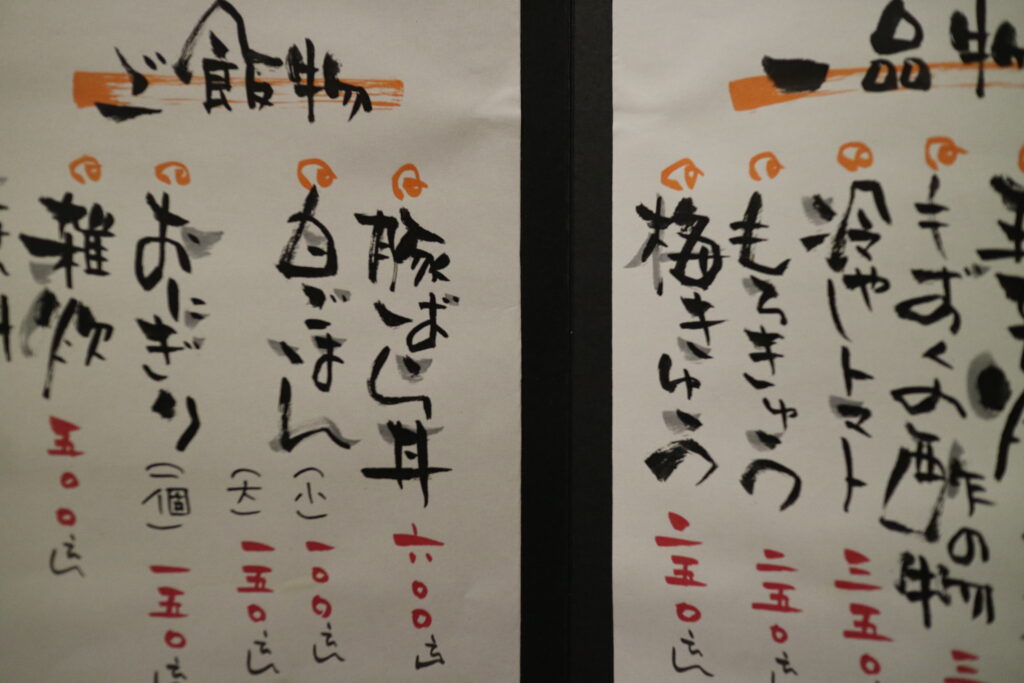 一品物
もずくの酢の物
冷やしトマト 三五〇
もろきゅう 二五〇円
梅きゅう 二五〇円
ご飯物
豚ばら丼 六〇〇円
白ごはん (小) 一〇〇円
(大) 一五〇円
おにぎり (二個) 一五〇円
雑炊 五〇〇円